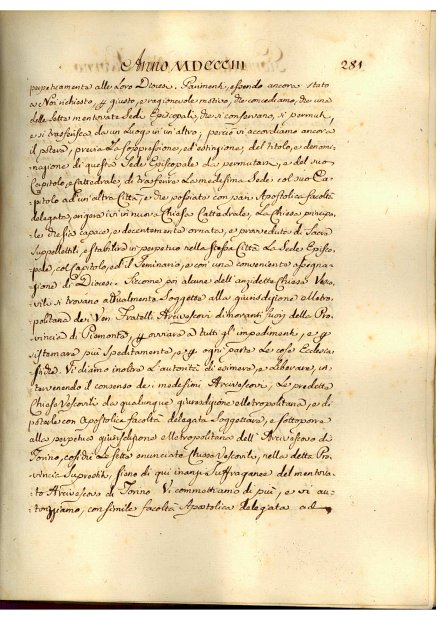 Anno MDCCCIII
281
perpetuamente alle loro Diocesi. Parimenti, essendo ancora stato
a Noi richiesto, p giusto, e ragionevole motivo, che concediamo, che una
delle sette mentovate Sedi Episcopali, che si conservano, si permuti,
e si trasferisca da un Luogo in un'altro, perciò vi accordiamo ancora
il potere, previa la soppressione, ed estinzione, del titolo, e denomi-
nazione di questa Sede Episcopale da permutarsi, e del suo
Capitolo, e Cattedrale, di trasferire la medesima Sede col suo Ca-
pitolo ad un'altra Città, e che possiate con pari Apostolica facoltà
delegata, erigere ivi in nuova Chiesa Cattedrale, la Chiesa principa-
le, che sia capace, e decentemente ornata, e proveduta di Sacra
Suppellettili, e stabilire in perpetuo nella stessa Città la Sede Episco-
pale, col Capitolo, ed il Seminario, e con una conveniente assegna-
zione di Diocesi. Siccome poi alcune dell'anzidette Chiese Vesco-
vili si trovano attualmente Soggette alla giurisdizione Metro-
politana dei Ven. Fratelli Arcivescovi dimoranti fuori della Pro-
vincia di Piemonte, p ovviare a tutti gl'impedimenti, e p
sistemare più Speditamente, e p ogni parte le cose Ecclesia-
stiche. Vi diamo inoltre l'autorità di esimere, e liberare, in-
tervenendo il consenso de' medesimi Arcivescovi, le predette
Chiese Vescovili da qualunque giurisdizione Metropolitana, e di
poterle con Apostolica facoltà delegata Soggettare, e sottoporre
alla perpetua giurisdizione Metropolitana dell'Arcivescovo di
Torino, così che le sette enunciate Chiese Vescovili, nella detta Pro-
vincia Superstiti, sieno di qui inanzi Suffraganee del mentova-
to Arcivescovo di Torino. Vi commettiamo di più, e vi au-
torizziamo, con simile facoltà Apostolica delegata ad